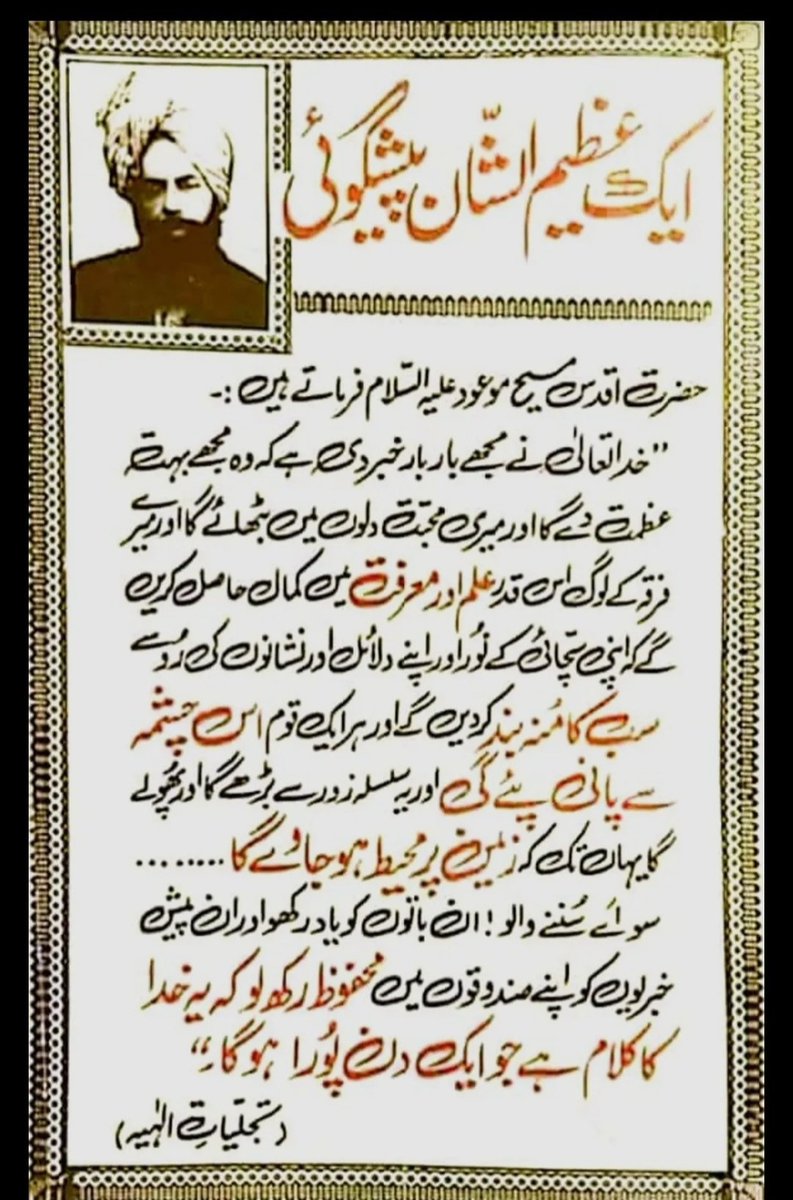 ایک عظیم الشّان پیشگوئی
حضرت اقدس مسیح موعود علیہ السّلام فرماتے ہیں :۔
”خدا تعالیٰ نے مجھے بار بار خبر دی ہے کہ وہ مجھے بہت
عظمت دے گا اور میری محبّت دلوں میں بٹھائے گا اور میرے
فرقہ کے لوگ اس قدر علم اور معرفت میں کمال حاصل کریں
گے کہ اپنی سچّائی کے نُور اور اپنے دلائل اور نشانوں کی رُو سے
سب کا مُنہ بند کر دیں گے اور ہر ایک قوم اس چشمہ
سے پانی پئے گی اور یہ سلسلہ زور سے بڑھے گا اور پھُولے
گا یہاں تک کہ زمین پر محیط ہو جاوے گا ........
سو اَے سُننے والو ! ان باتوں کو یاد رکھو اور ان پیش
خبریوں کو اپنے صندوقوں میں محفوظ رکھ لو کہ یہ خدا
کا کلام ہے جو ایک دن پُورا ہو گا ۔“
(تجلیّاتِ الٰہیہ)